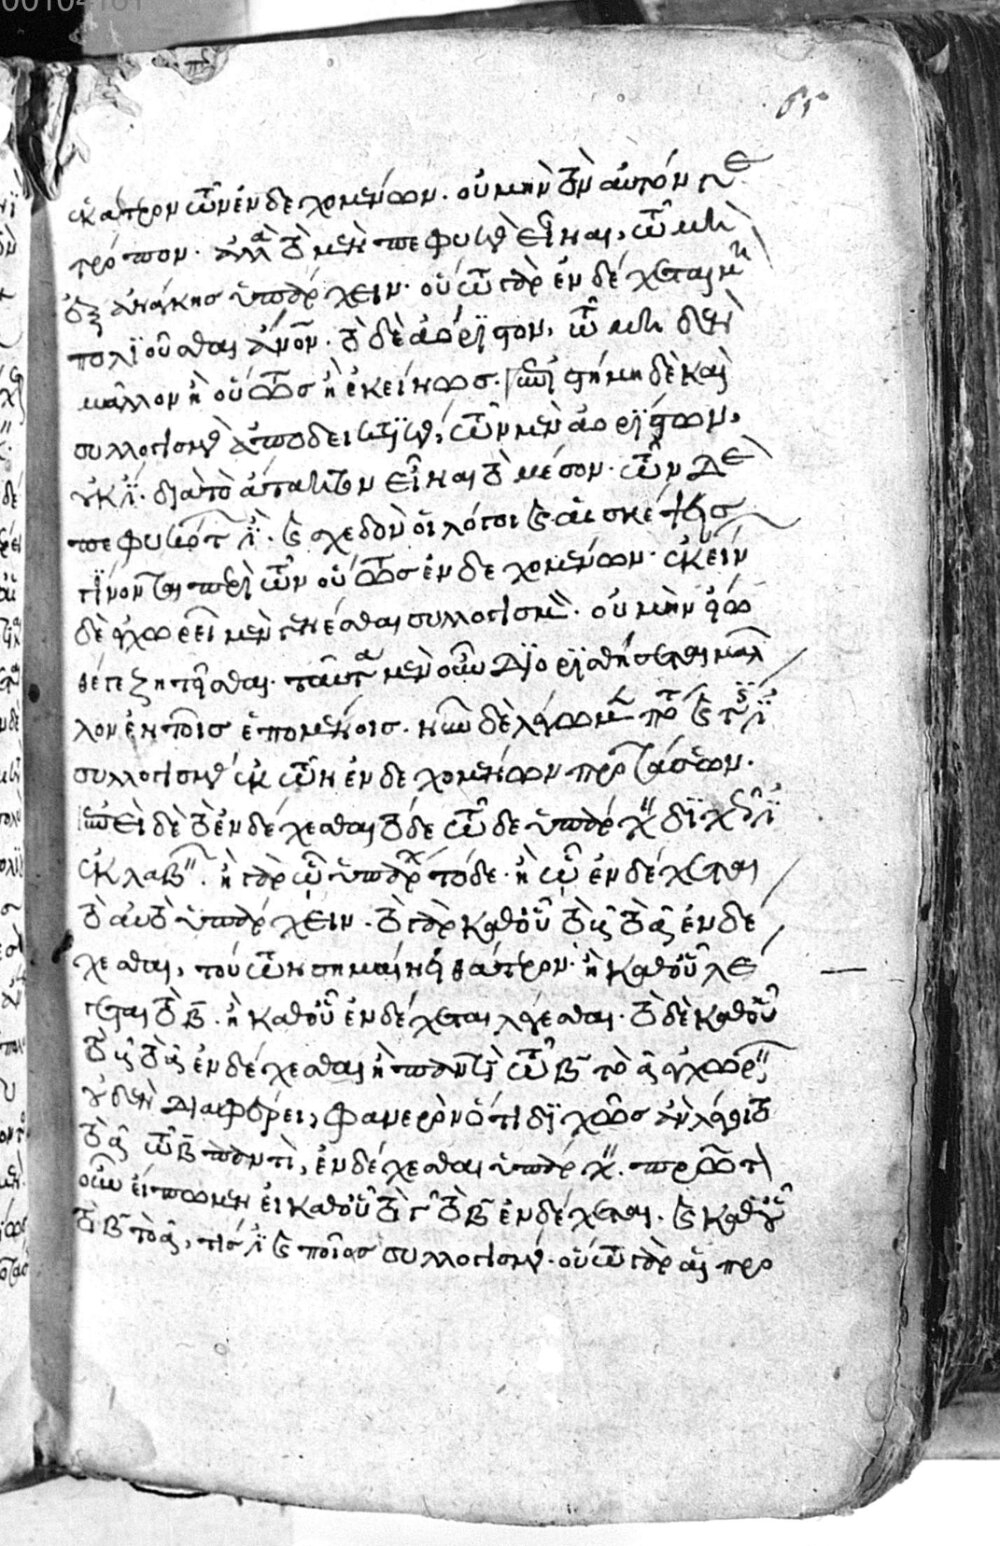 ἑκάτερον τῶν ἐνδεχομένων. οὐ μὴν τὸν αὐτόν γε
τρόπον. ἀλλὰ τὸ μὲν πεφυκὸς εἶναι, τῷ μὴ
ἐξ ἀνάγκης ὑπάρχειν. οὕτω γὰρ ἐνδέχεται μὴ
πολϊοῦσθαι ἄνθρωπον. τὸ δὲ ἀόρϊστον, τῷ μηδὲν
μᾶλλον ἢ οὕτως ἢ ἐκείνως. ἐπιστήμη δὲ καὶ
συλλογισμὸς ἀποδεικτϊκὸς, τῶν μὲν ἀορϊστων,
οὐκ ἔστϊ. διὰ τὸ ἄτακτον εἶναι τὸ μέσον. τῶν δὲ
πεφυκότων ἔστϊ. καὶ σχεδὸν οἱ λόγοι καὶ αἱ σκέψεις
γϊνονται περὶ τῶν οὕτως ἐνδεχομένων. ἐκείνων
δὲ ἐγχωρεῖ μὲν γενέσθαι συλλογισμὸν. οὐ μὴν εἴω
θέ γε ζητεῖσθαι. ταῦτα μὲν οὖν δϊορϊσθήσεται μᾶλ
λον ἐν τοῖς ἑπομένοις. νῦν δὲ λέγωμεν πότε καὶ τίς ἔσται
συλλογισμὸς ἐκ τῶν ἐνδεχομένων προτάσεων.
ἐπεὶ δὲ τὸ ἐνδέχεσθαι τόδε τῷδε ὑπάρχειν δϊχῶς ἔστϊν
ἐκλαβεῖν. ἢ γὰρ ᾧ ὑπάρχει τόδε. ἢ ᾧ ἐνδέχεται
τὸ αὐτὸ ὑπάρχειν. τὸ γὰρ καθοῦ τὸ β̄ τὸ ᾱ ἐνδέ
χεσθαι, τούτων σημαίνει θάτερον. ἢ καθοῦ λέ
γεται τὸ β̄. ἢ καθοῦ ἐνδέχεται λέγεσθαι. τὸ δὲ καθοῦ
τὸ β̄ τὸ ᾱ ἐνδέχεσθαι ἢ παντὶ τῷ β̄ τὸ ᾱ ἐγχωρεῖν,
οὐδὲν διαφέρει, φανερὸν ὅτι δϊχῶς ἂν λέγοιτο
τὸ ᾱ τῷ β̄ παντὶ, ἐνδέχεσθαι ὑπάρχειν. πρῶτον
οὖν εἴπωμεν εἰ καθοῦ τὸ γ̄ τὸ β̄ ἐνδέχεται. καὶ καθοῦ
τὸ β̄ τὸ ᾱ, τίς ἔσται καὶ ποῖος συλλογισμός. οὕτω γὰρ αἱ προ